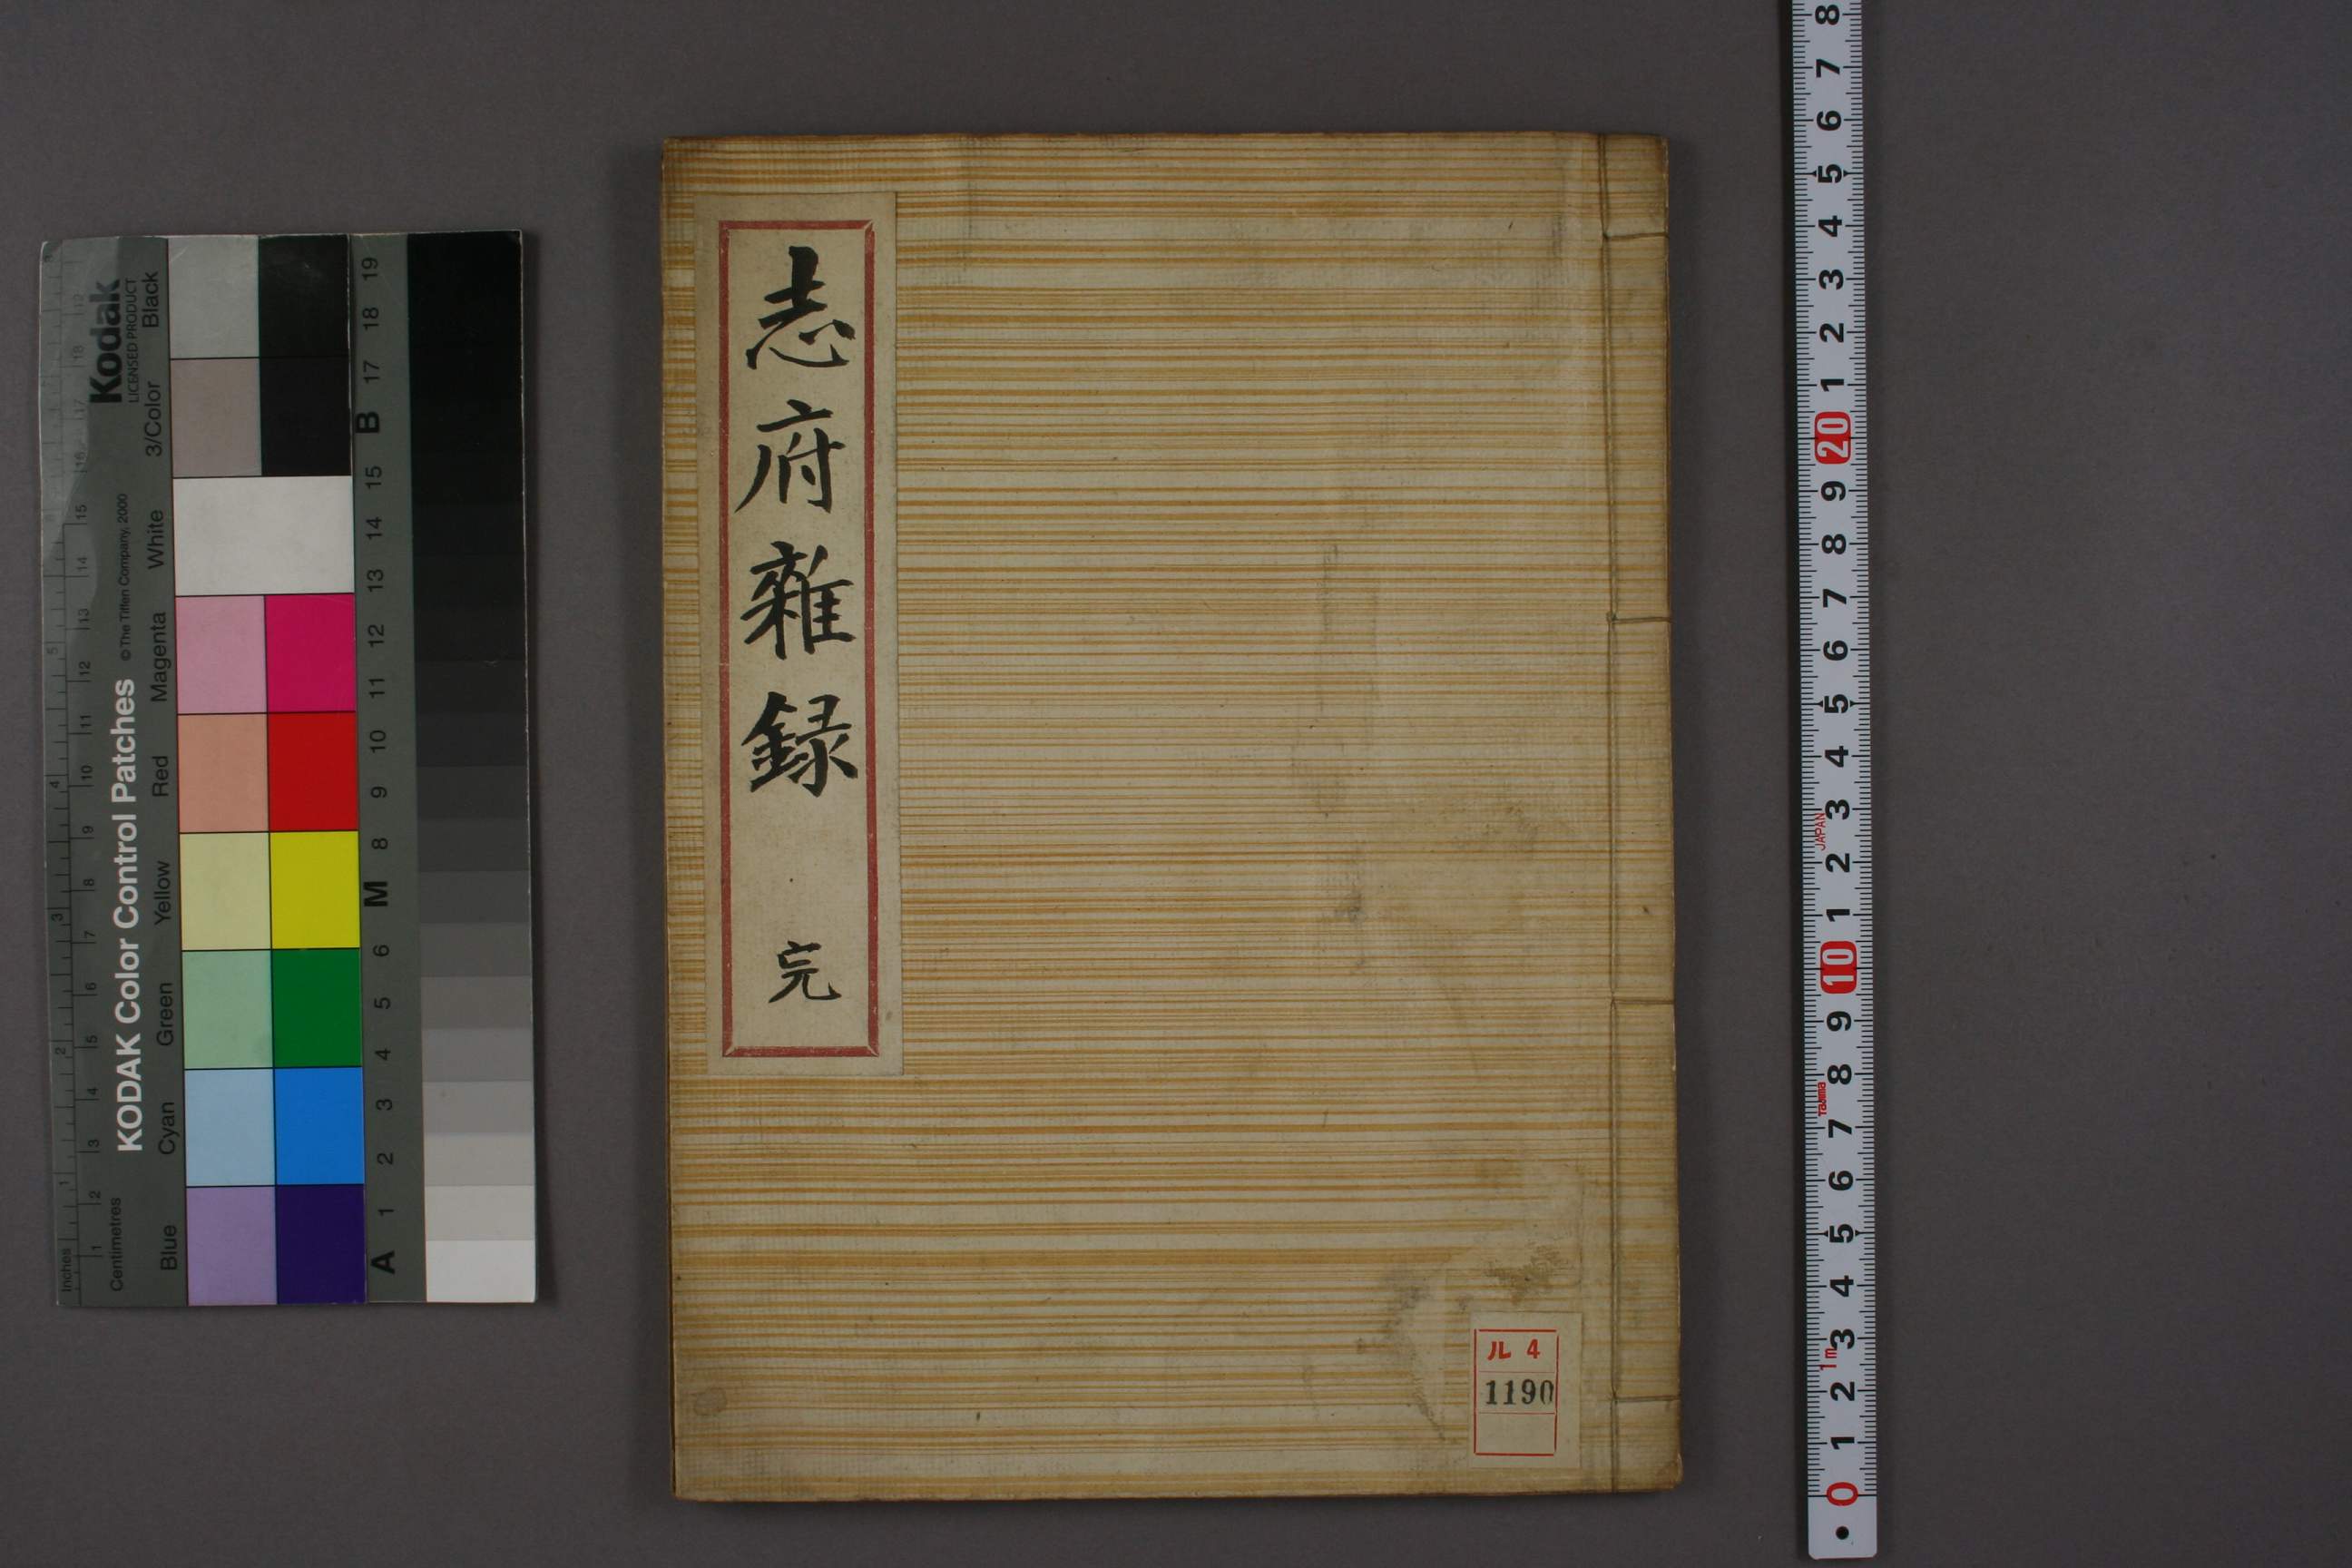 志府雜録 完
ル 4
1190
Kodak
LICENSED PRODUCT
KODAK Color Control Patches
©The Tiffen Company, 2000
Inches
Centimetres
Blue
Cyan
Green
Yellow
Red
Magenta
White
3/Color
Black
A 1 2 3 4 5 6 M 8 9 10 11 12 13 14 15 B 17 18 19
8
7
6
5
4
3
2
1
20
9
8
7
6
5
4
3
JAPAN
2
1
10
9
8
Tajima
7
6
5
4
3
1m
2
1
0